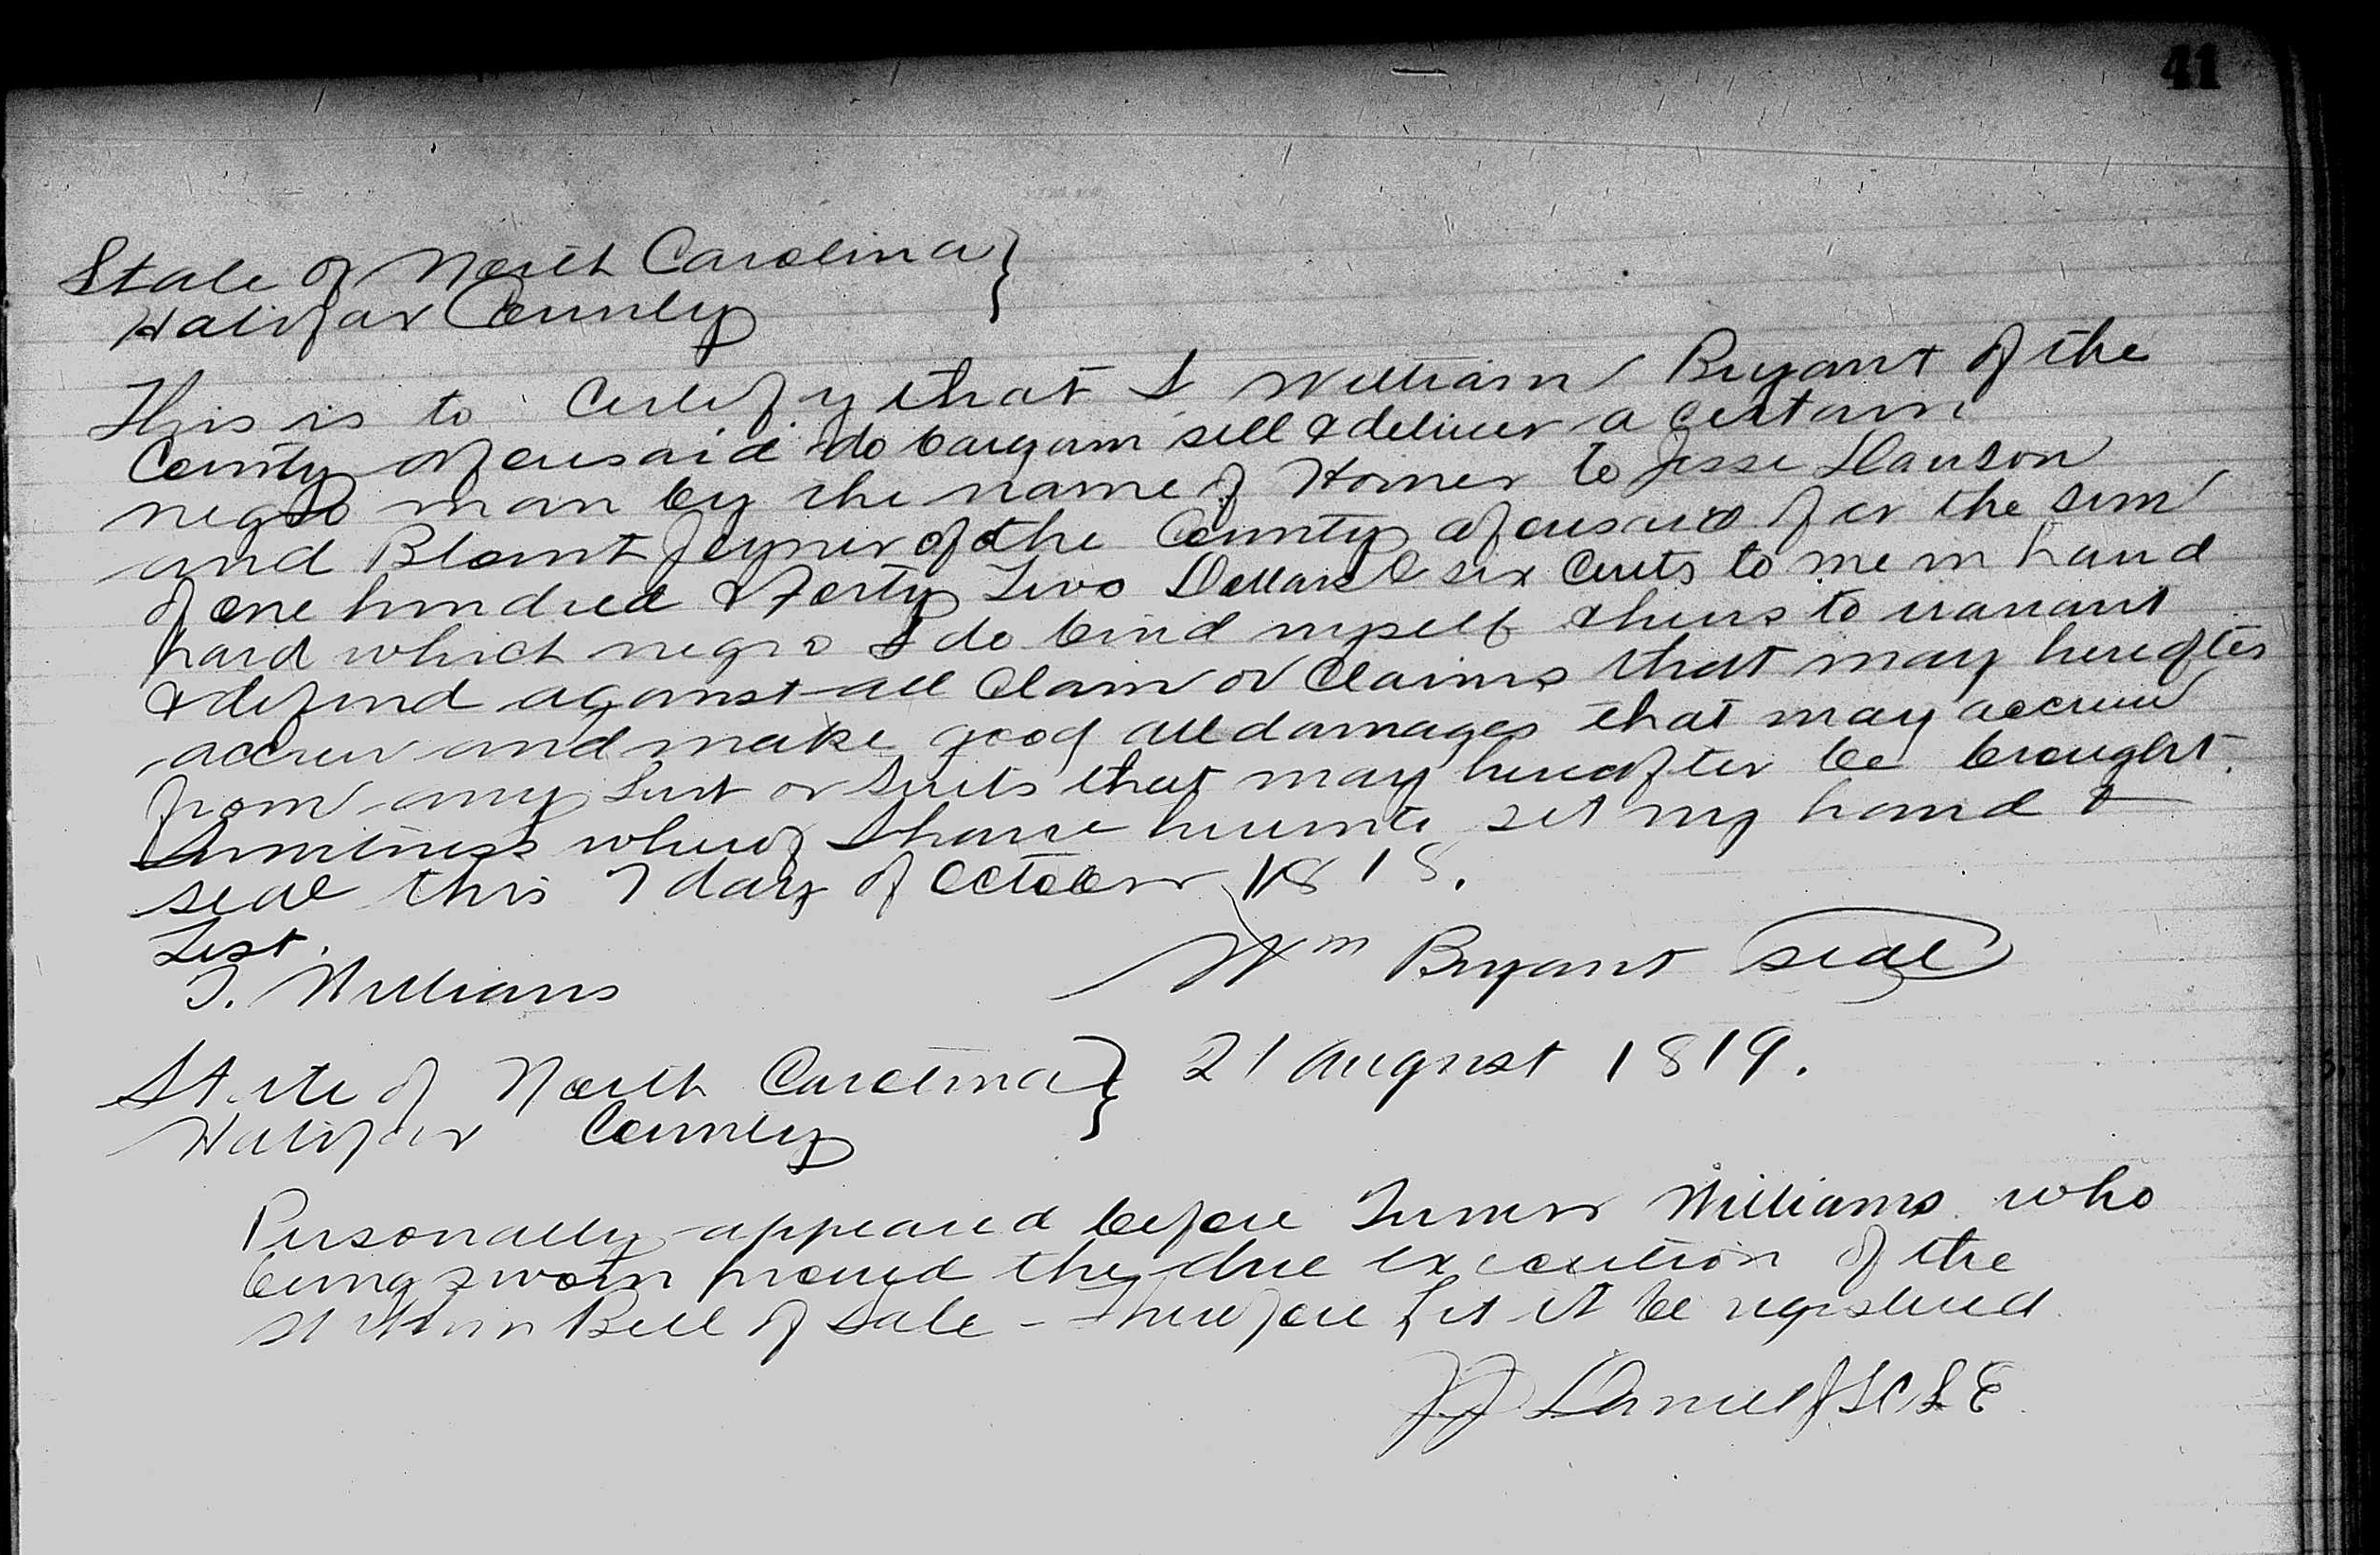 41
State of North Carolina }
Halifax County
This is to Certify that I William Bryant of the
County aforesaid do bargain sell & deliver a certain
negro man by the name of Homer to Jesse Dawson
and Blount Joyner of the County aforesaid for the sum
of one hundred & Forty Two Dollars & six Cents to me in hand
paid which negro I do bind myself & heirs to warrant
& defend against all Claim or Claims that may hereafter
accrue and make good all damages that may accrue
from any Suit or Suits that may hereafter be brought.
In witness whereof I have hereunto set my hand &
seal this 7 day of October 1818.
Test.
T. Williams Wm Bryant seal
State of North Carolina } 21 August 1819.
Halifax County
Personally appeared before Turner Williams who
being sworn proved the due execution of the
within Bill of Sale - Therefore let it be registered
JJ Daniel J S C L E